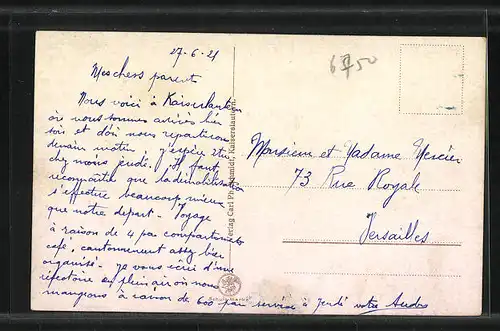 27-6-21
6750
Mes chers parents
Nous voici à Kaiserslautern
où nous sommes arrivés hier
soir et d'où nous repartirons
demain matin, j'espère être
chez moi jeudi. Il faut
reconnaître que la démobilisation
s'effectue beaucoup mieux
que notre départ. Voyage
à raison de 4 par compartiments
café, cantonnement assez bien
organisé. Je vous écris d'un
réfectoire en plein air où nous
mangeons à raison de 600 par service à jeudi votre
Verlag Carl Ph. Schmidt, Kaiserslautern.
Monsieur et Madame Mercier
73 Rue Royale
Versailles